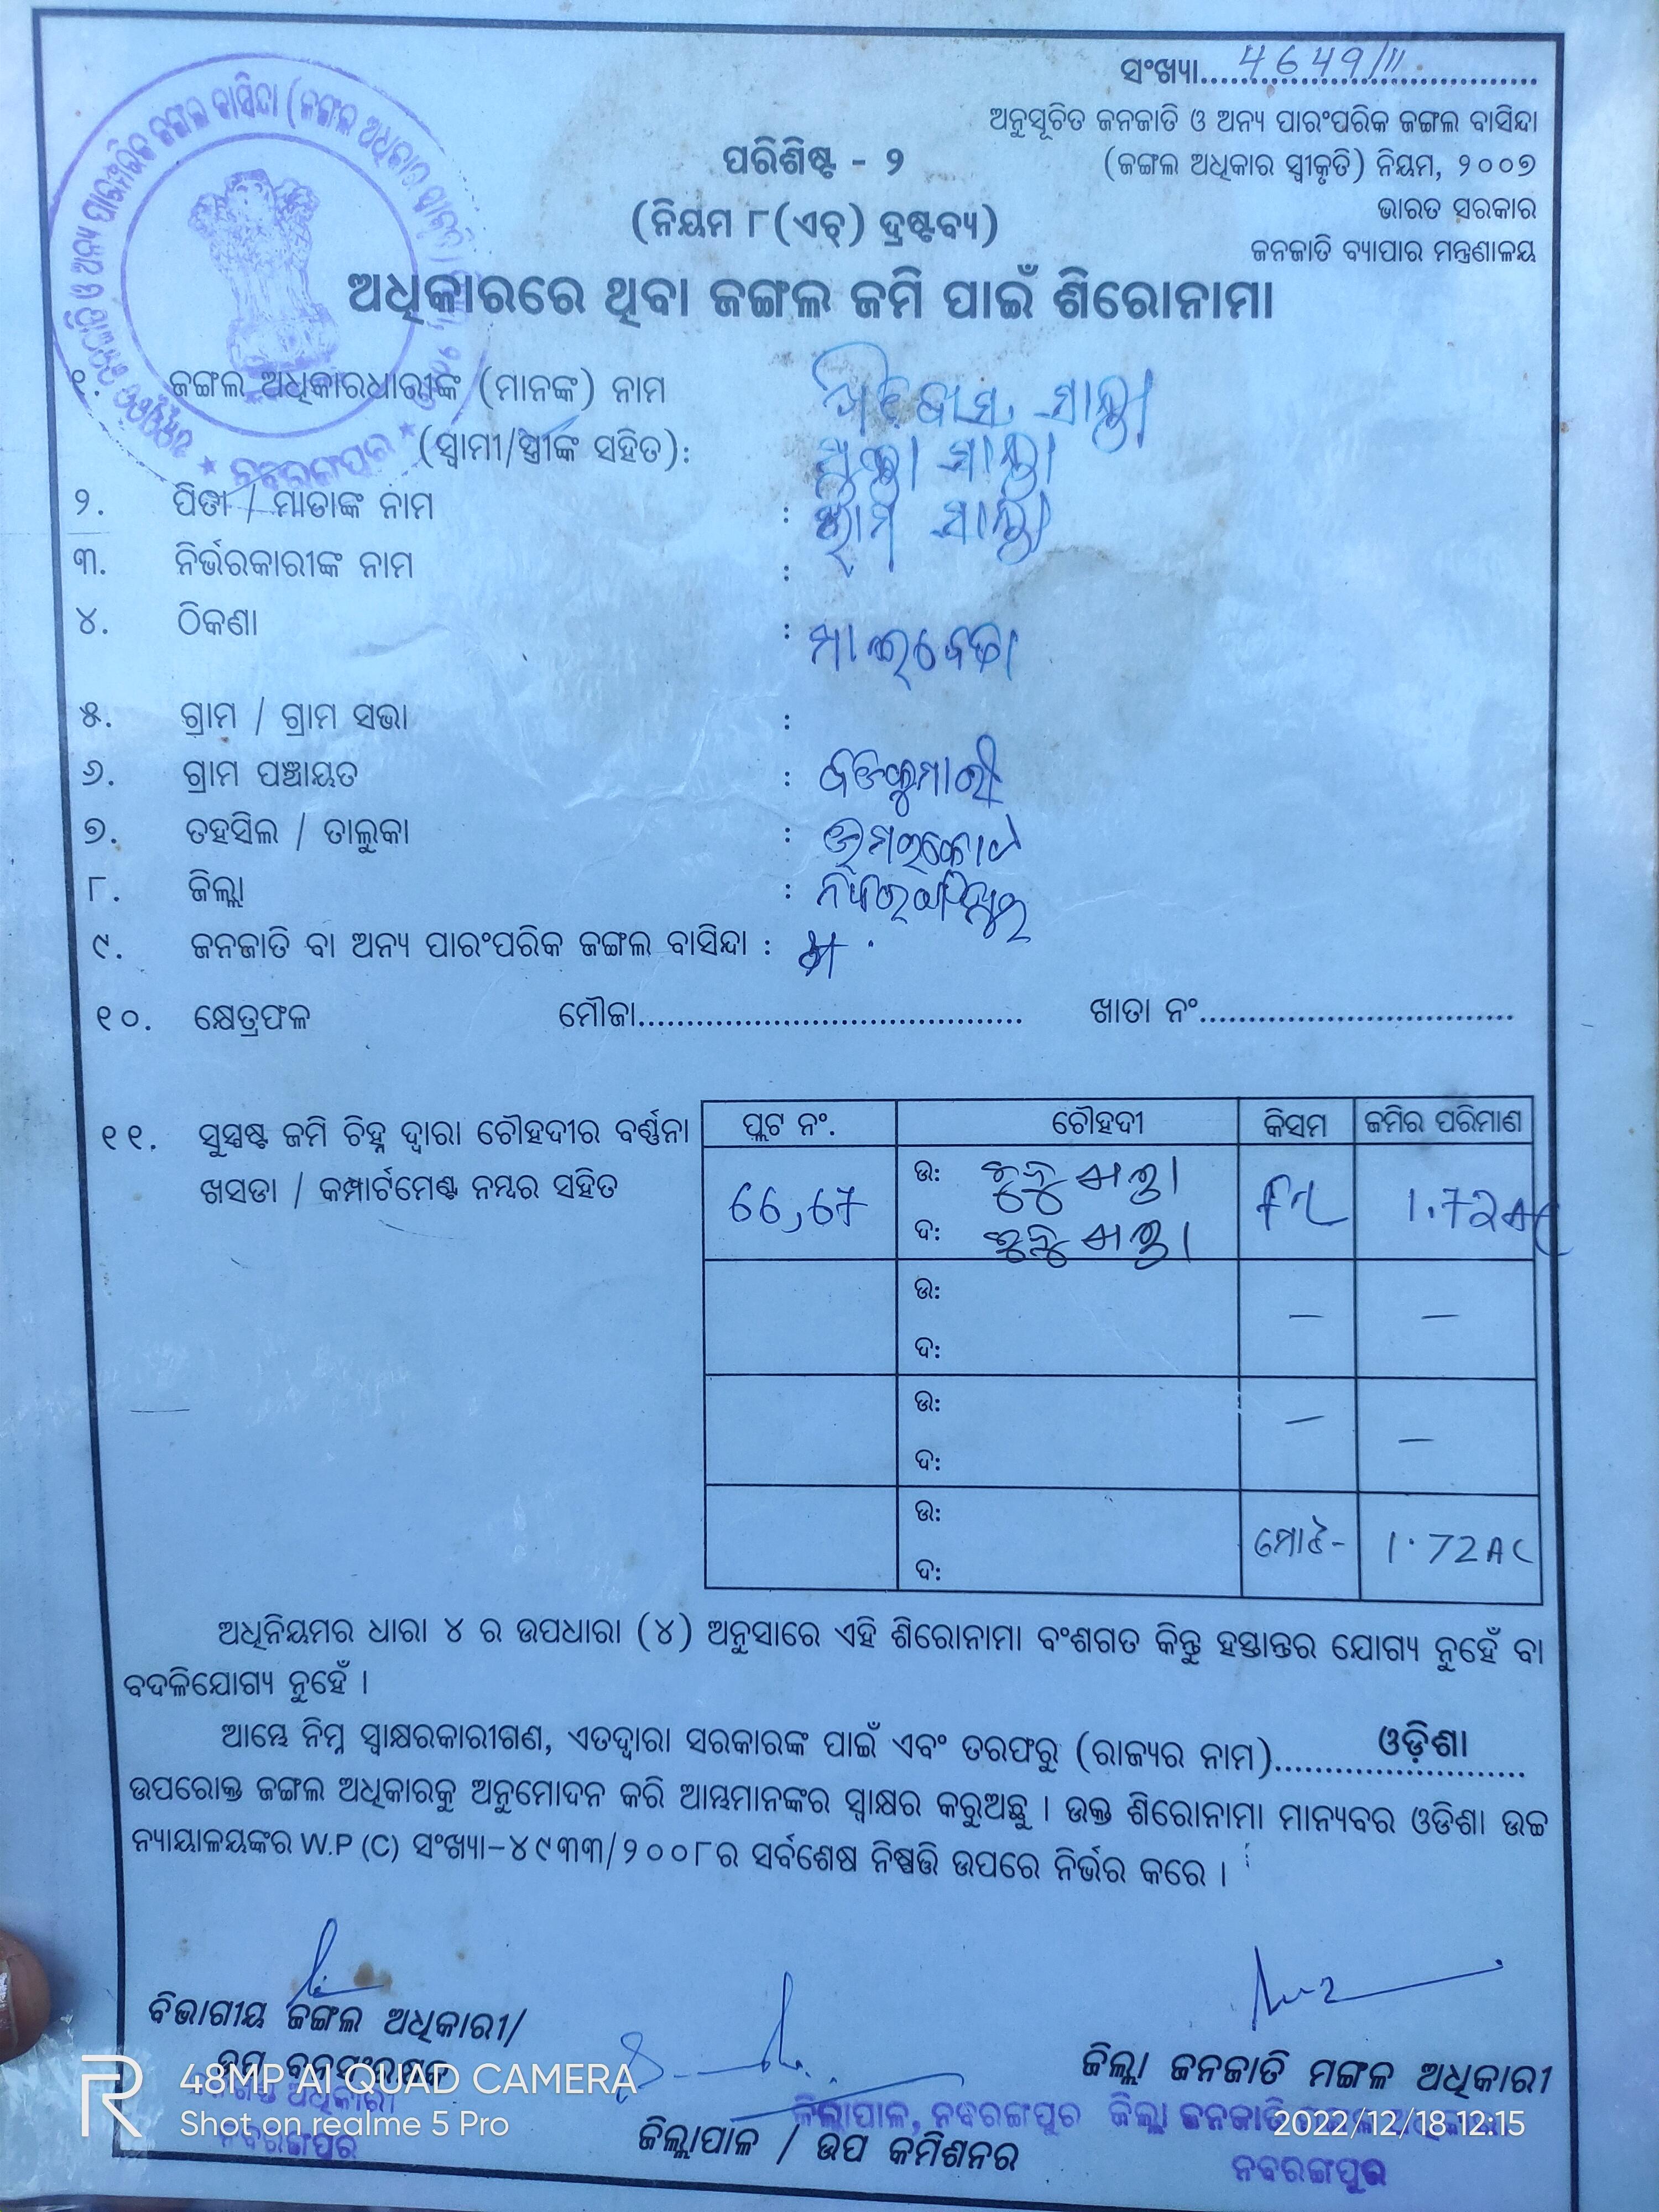 ସଂଖ୍ୟା.................................. 4649/III
ଅନୁସୂଚିତ ଜନଜାତି ଓ ଅନ୍ୟ ପାରଂପରିକ ଜଙ୍ଗଲ ବାସିନ୍ଦା
(ଜଙ୍ଗଲ ଅଧିକାର ସ୍ୱୀକୃତି) ନିୟମ, ୨୦୦୭
ଭାରତ ସରକାର
ଜନଜାତି ବ୍ୟାପାର ମନ୍ତ୍ରଣାଳୟ
ପରିଶିଷ୍ଟ - ୨
(ନିୟମ ୮(ଏଚ୍) ଦ୍ରଷ୍ଟବ୍ୟ)
ଅଧିକାରରେ ଥିବା ଜଙ୍ଗଲ ଜମି ପାଇଁ ଶିରୋନାମା
୧. ଜଙ୍ଗଲ ଅଧିକାରଧାରୀଙ୍କ (ମାନଙ୍କ) ନାମ
(ସ୍ୱାମୀ/ସ୍ତ୍ରୀଙ୍କ ସହିତ):
୨. ପିତା / ମାତାଙ୍କ ନାମ :
୩. ନିର୍ଭରକାରୀଙ୍କ ନାମ :
୪. ଠିକଣା :
୫. ଗ୍ରାମ / ଗ୍ରାମ ସଭା :
୬. ଗ୍ରାମ ପଞ୍ଚାୟତ :
୭. ତହସିଲ / ତାଲୁକା : ଉମରକୋଟ
୮. ଜିଲ୍ଲା :
୯. ଜନଜାତି ବା ଅନ୍ୟ ପାରଂପରିକ ଜଙ୍ଗଲ ବାସିନ୍ଦା :
୧୦. କ୍ଷେତ୍ରଫଳ ମୌଜା....................................... ଖାତା ନଂ................................
୧୧. ସୁସ୍ପଷ୍ଟ ଜମି ଚିହ୍ନ ଦ୍ୱାରା ଚୌହଦୀର ବର୍ଣ୍ଣନା
ଖସଡା / କମ୍ପାର୍ଟମେଣ୍ଟ ନମ୍ବର ସହିତ
ପ୍ଲଟ ନଂ. ଚୌହଦୀ କିସମ ଜମିର ପରିମାଣ
66,67 ଉ: 1.72 AC
ଦ:
ଉ: — —
ଦ:
ଉ: — —
ଦ:
ଉ: ମୋଟ- 1.72 AC
ଦ:
ଅଧିନିୟମର ଧାରା ୪ ର ଉପଧାରା (୪) ଅନୁସାରେ ଏହି ଶିରୋନାମା ବଂଶଗତ କିନ୍ତୁ ହସ୍ତାନ୍ତର ଯୋଗ୍ୟ ନୁହେଁ ବା
ବଦଳିଯୋଗ୍ୟ ନୁହେଁ ।
ଆମ୍ଭେ ନିମ୍ନ ସ୍ୱାକ୍ଷରକାରୀଗଣ, ଏତଦ୍ୱାରା ସରକାରଙ୍କ ପାଇଁ ଏବଂ ତରଫରୁ (ରାଜ୍ୟର ନାମ)......ଓଡ଼ିଶା......
ଉପରୋକ୍ତ ଜଙ୍ଗଲ ଅଧିକାରକୁ ଅନୁମୋଦନ କରି ଆମ୍ଭମାନଙ୍କର ସ୍ୱାକ୍ଷର କରୁଅଛୁ । ଉକ୍ତ ଶିରୋନାମା ମାନ୍ୟବର ଓଡିଶା ଉଚ୍ଚ
ନ୍ୟାୟାଳୟଙ୍କର W.P (C) ସଂଖ୍ୟା-୪୯୩୩/୨୦୦୮ର ସର୍ବଶେଷ ନିଷ୍ପତ୍ତି ଉପରେ ନିର୍ଭର କରେ ।
ବିଭାଗୀୟ ଜଙ୍ଗଲ ଅଧିକାରୀ/
ନବରଙ୍ଗପୁର
ଜିଲ୍ଲାପାଳ, ନବରଙ୍ଗପୁର
ଜିଲ୍ଲାପାଳ / ଉପ କମିଶନର
ଜିଲ୍ଲା ଜନଜାତି ମଙ୍ଗଳ ଅଧିକାରୀ
ଜିଲ୍ଲା ଜନଜାତି
ନବରଙ୍ଗପୁର
48MP AI QUAD CAMERA
Shot on realme 5 Pro
2022/12/18 12:15